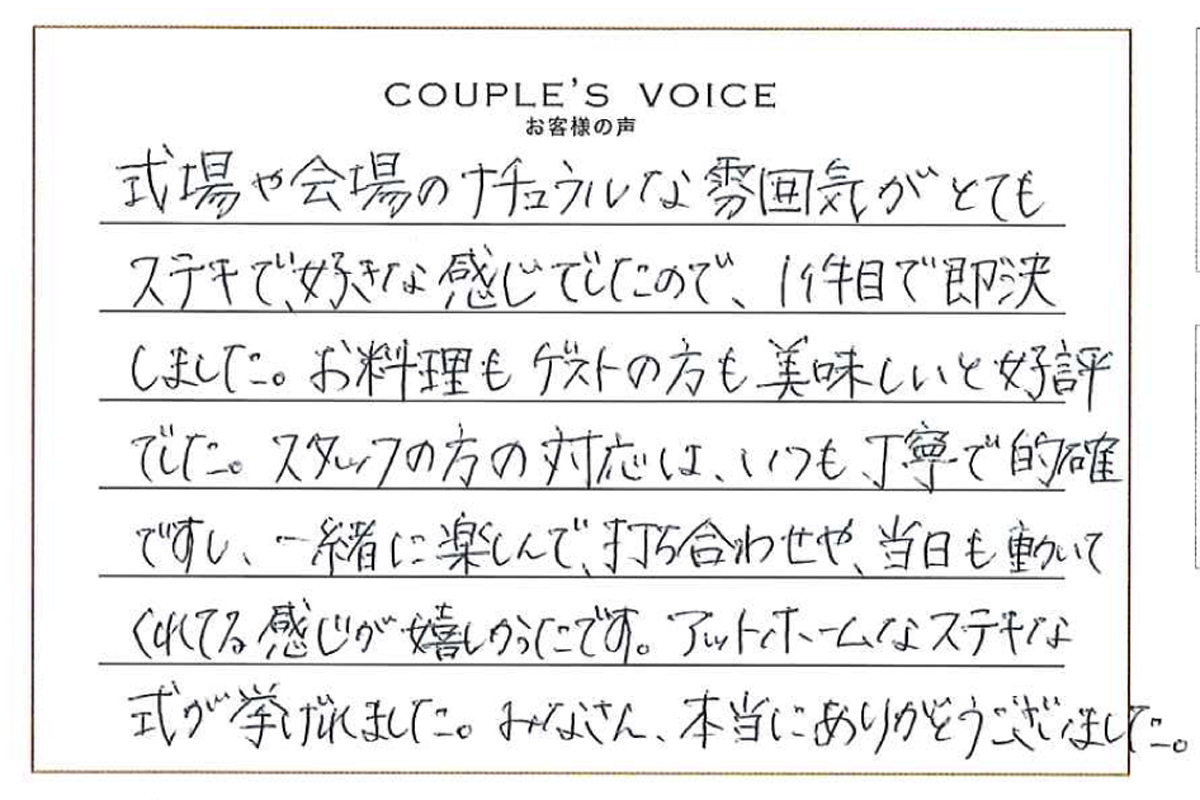 COUPLE'S VOICE
お客様の声
式場や会場のナチュラルな雰囲気がとても
ステキで、好きな感じでしたので、1件目で即決
しました。お料理もゲストの方も美味しいと好評
でした。スタッフの方の対応は、いつも丁寧で的確
ですし、一緒に楽しんで、打ち合わせや、当日も動いて
くれてる感じが嬉しかったです。アットホームなステキな
式が挙げれました。みなさん、本当にありがとうございました。